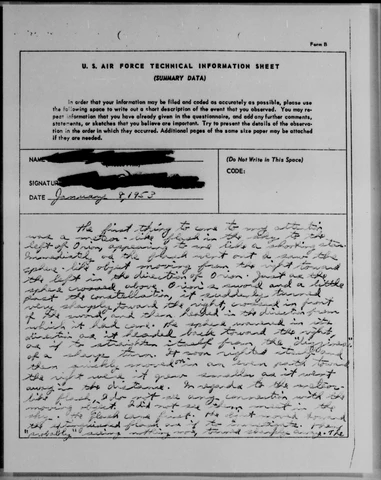 Form B
U. S. AIR FORCE TECHNICAL INFORMATION SHEET
(SUMMARY DATA)
In order that your information may be filed and coded as accurately as possible, please use
the following space to write out a short description of the event that you observed. You may re-
peat information that you have already given in the questionnaire, and add any further comments,
statements, or sketches that you believe are important. Try to present the details of the observa-
tion in the order in which they occurred. Additional pages of the same size paper may be attached
if they are needed.
NAME
SIGNATUR
DATE January 9, 1953
(Do Not Write in This Space)
CODE:
The first thing to come to my attention
was a meteor-like flash in the sky to the
left of Orion appearing to me like a shooting star.
Immediately as the flash went out I saw the
sphere-like object moving from the right toward
the left in the direction of Orion. Just as the
sphere crossed above Orion's sword and a little
past the constellation it suddenly turned
very sharply toward the right, in front
of the wind, and then headed in the direction from
which it had come. The sphere in its
direction as it headed back toward the right
as if to straighten itself from the
of a sharp turn. It soon righted itself and
then quickly moved on an even path toward
the right where it grew smaller as it went
away in the distance. In regards to the meteor-
like flash, I do not see any connection with the
moving object. I did not see them meet in the
sky. The flash came first. The object moved toward
the flash as if to investigate. Then
probably seeing nothing now, turned sharply away. The